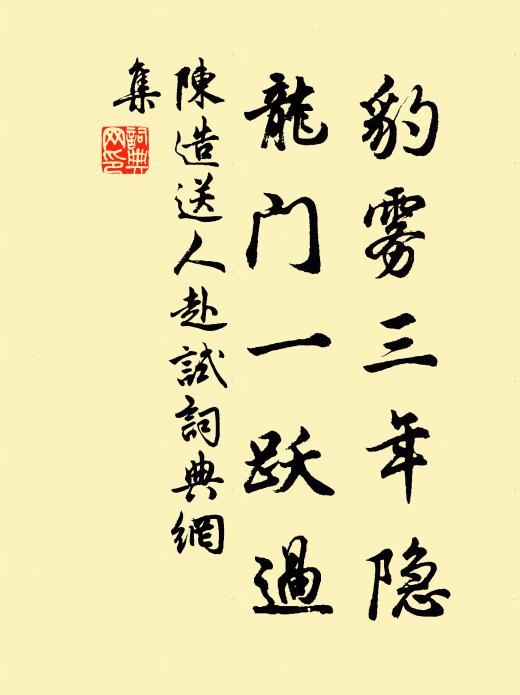 豹雾三年隐
龍门一跃過
陳造送人赴試詞典網
集
詞典网印